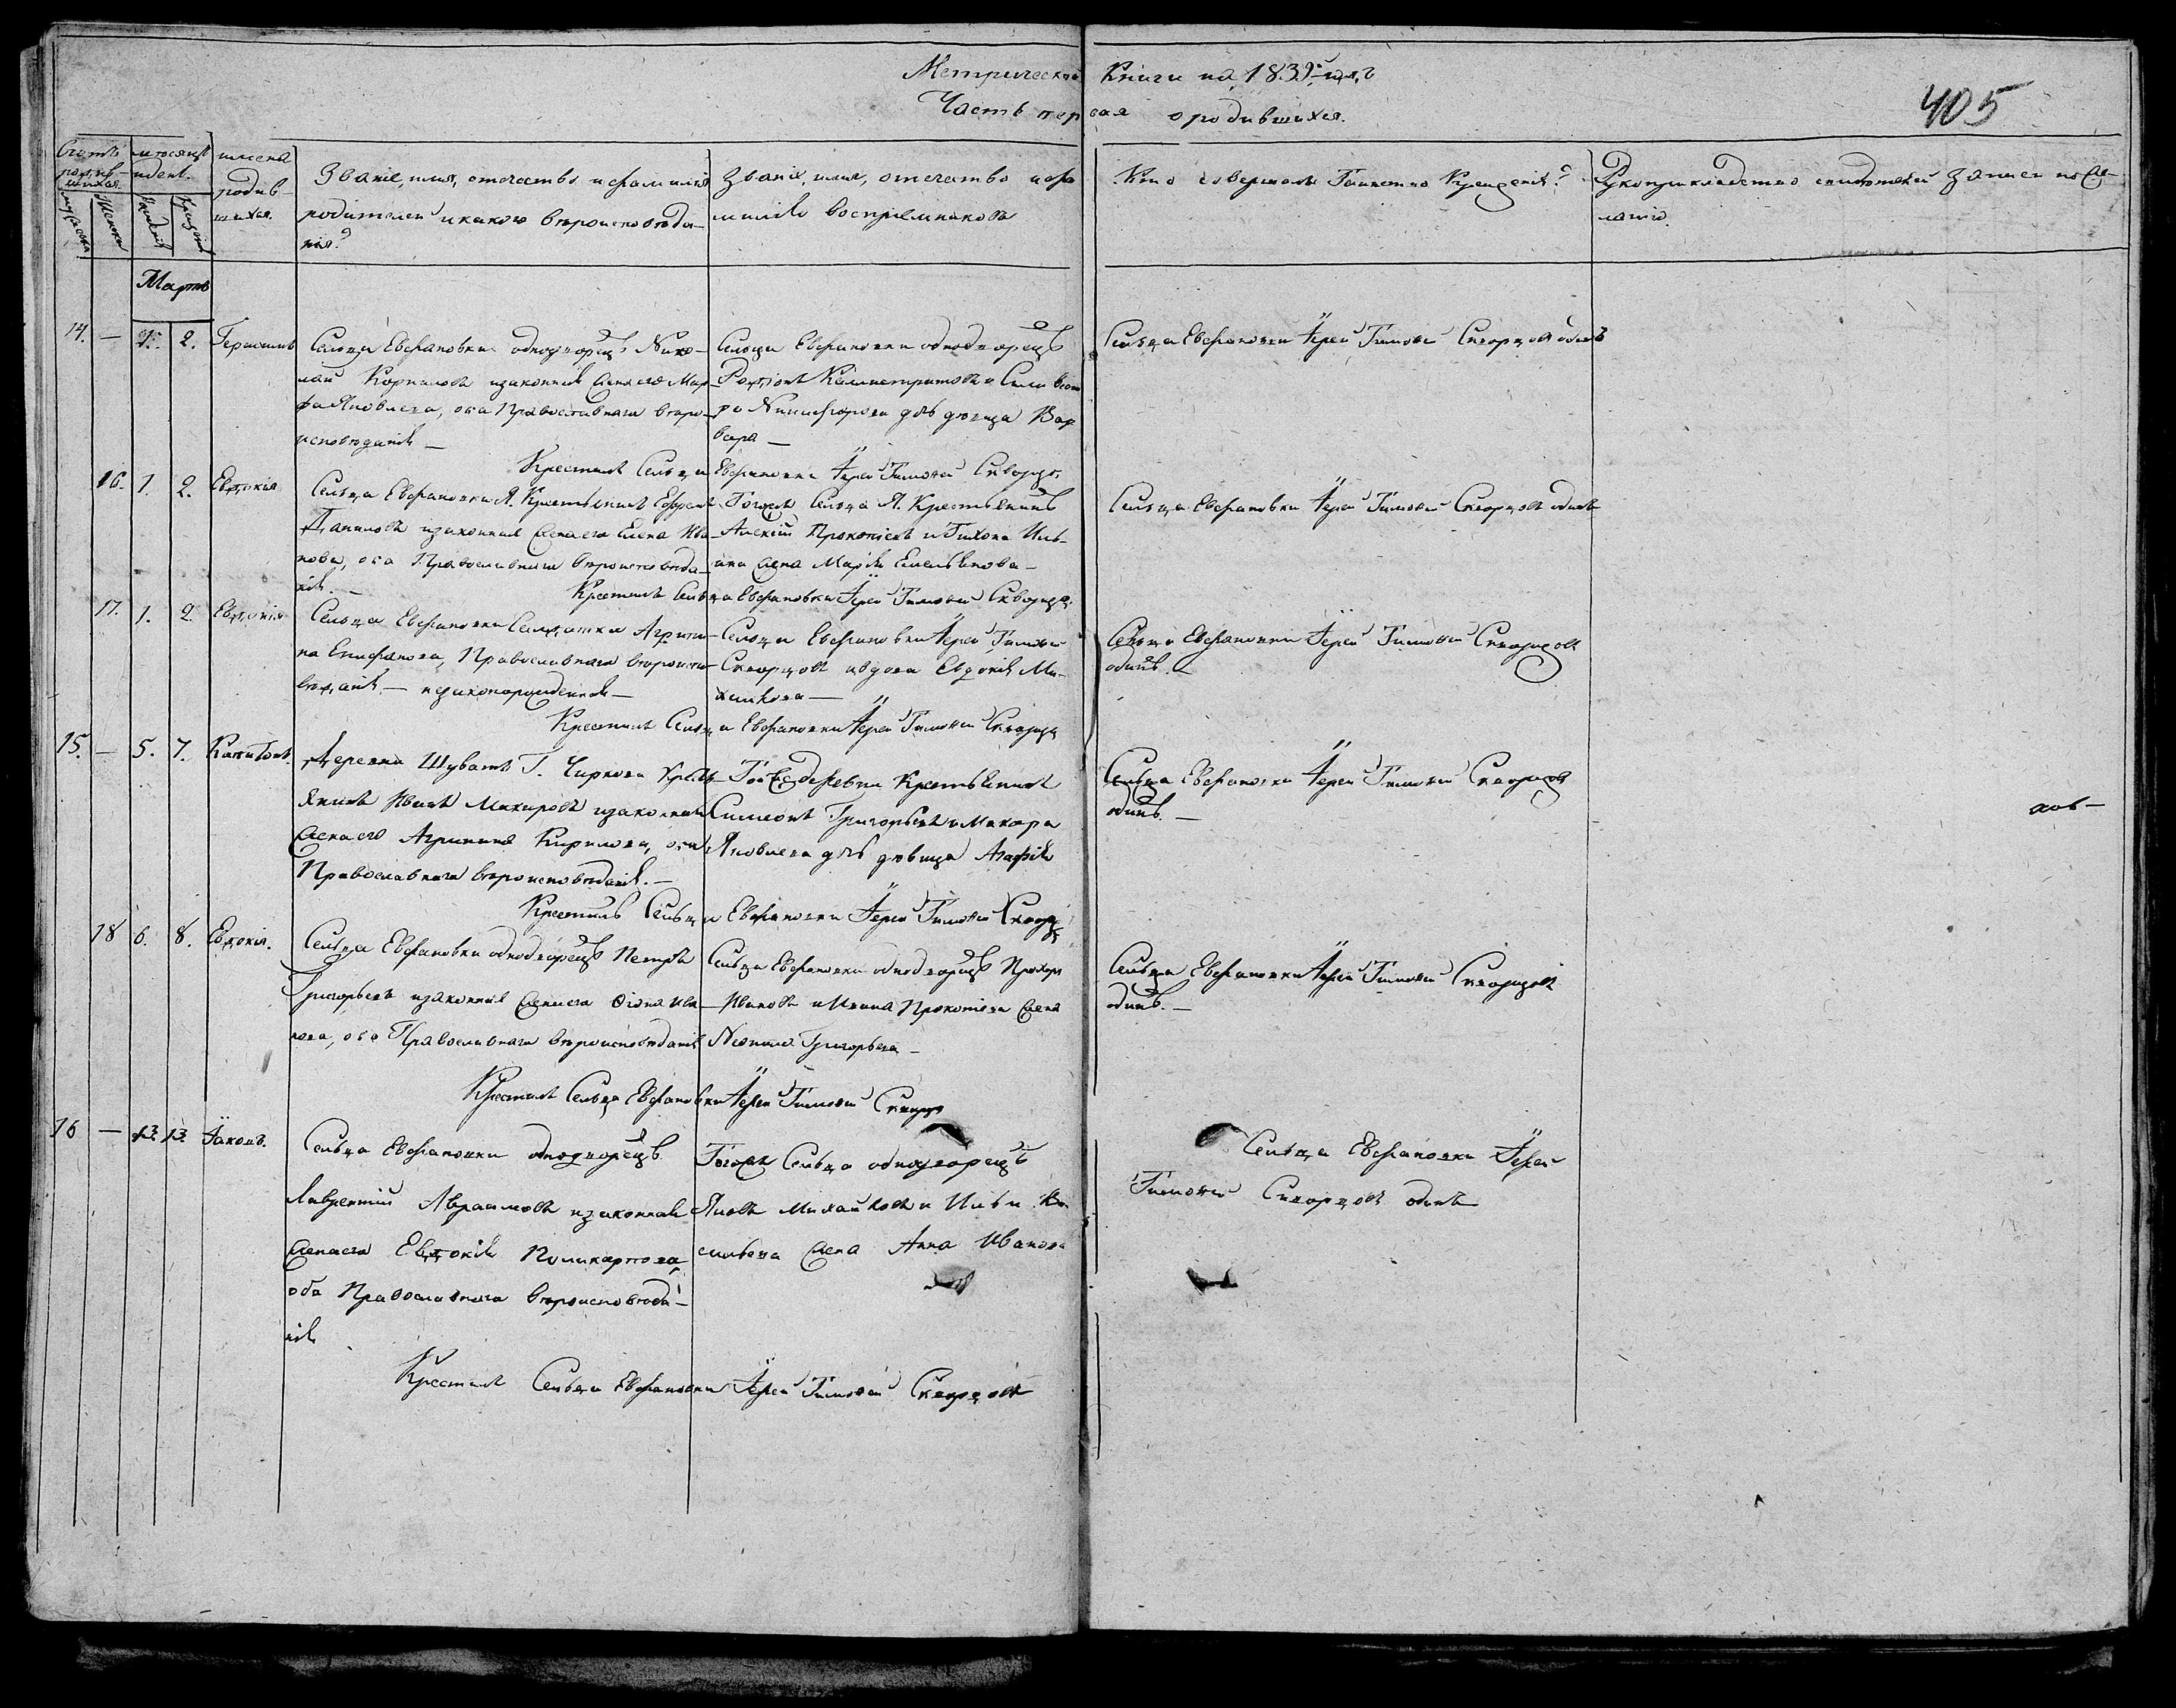 Метрической Книги на 1839 годъ
Часть первая о родившихся.
405
Счетъ родившихся
мужеска
женска
мѣсяцъ и день
рожденія
крещенія
имена родив-
шихся
Званіе, имя, отечество и фамилія
родителей и какого вѣроисповѣда-
нія?
Званіе, имя, отечество и фа-
милія воспріемниковъ
Кто совершалъ Таинство Крещенія?
Рукоприкладство свидѣтелей записи по же-
ланію.
Мартъ
14. — 1. 2. Герасимъ
Сельца Евфановки однодворецъ Нико-
лай Корниловъ и законная жена его Мар-
фа Яковлева, оба Православнаго вѣро-
исповѣданія —
Сельца Евфановки однодворецъ
Родіонъ Калистратовъ и Сильвест
ра Никифорова дочь дѣвица Вар
вара —
Сельца Евфановки Іерей Тимофей Скворцовъ одинъ
Крестилъ Сельца Евфановки Іерей Тимофей Скворцо.
16. 1. 2. Евдокія
Сельца Евфановки Я. Крестьянинъ Ефремъ
Даниловъ и законная жена его Елена Ива-
нова, оба Православнаго вѣроисповѣда-
нія. —
Тогожъ Сельца Я. Крестьянинъ
Алексій Прокопіевъ и Тихона Иль-
ина жена Марія Емельянова —
Сельца Евфановки Іерей Тимофей Скворцовъ одинъ
Крестилъ Сельца Евфановки Іерей Тимофей Скворцо.
17. 1. 2. Евдокія
Сельца Евфановки Салдатка Агрипи-
на Епифанова, Православнаго вѣроиспо-
вѣданія — незаконорожденной —
Сельца Евфановки Іерей Тимофей
Скворцовъ и вдова Евдокія Ми-
хайлова —
Сельца Евфановки Іерей Тимофей Скворцовъ
одинъ. —
Крестилъ Сельца Евфановки Іерей Тимофей Скворцо
15. — 5. 7. Капитонъ.
Деревни Шувать Г. Чиркова Кресть-
янинъ Иванъ Макаровъ и законная
жена его Агрипина Кирилова, оба
Православнаго вѣроисповѣданія. —
Тойже деревни Крестьянинъ
Симеонъ Григорьевъ и Макара
Яковлева дочь дѣвица Агафія
Сельца Евфановки Іерей Тимофей Скворцов
одинъ. —
Крестилъ Сельца Евфановки Іерей Тимофей Скворц
18 6. 8. Евдокія.
Сельца Евфановки однодворецъ Петръ
Григорьевъ и законная жена его Фіона Ива-
нова, оба Православнаго вѣроисповѣданія
Сельца Евфановки однодворецъ Прохоръ
Ивановъ и Ивана Прокопіева жена
Неонила Григорьева —
Сельца Евфановки Іерей Тимофей Скворцовъ
одинъ. —
Крестилъ Сельца Евфановки Іерей Тимофей Скворц
16 — 13. 13. Іаковъ.
Сельца Евфановки однодворецъ
Лаврентій Авраамовъ и законная
жена его Евдокія Поликарпова,
оба Православнаго вѣроисповѣда-
нія
Тогожъ Сельца однодворецъ
Яковъ Михайловъ и Ильи Ва
сильева жена Анна Иванова
Сельца Евфановки Іерей
Тимофей Скворцовъ одинъ
Крестилъ Сельца Евфановки Іерей Тимофей Скворцовъ